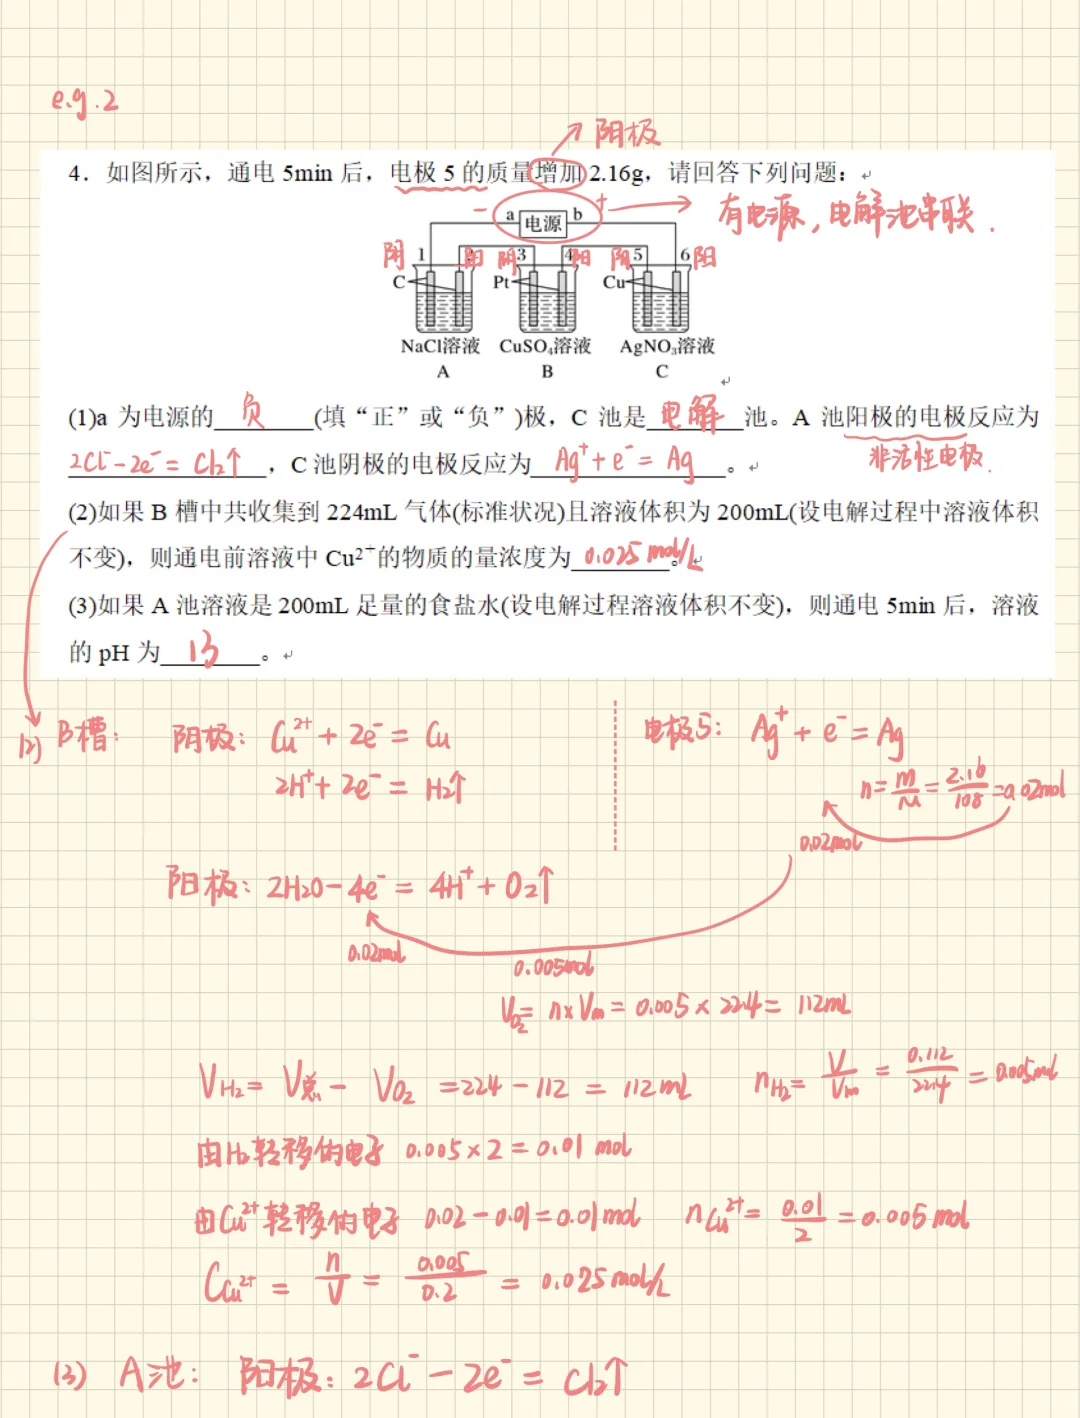 e.g.2
阳极
4．如图所示，通电 5min 后，电极 5 的质量增加 2.16g，请回答下列问题：
- a 电源 b +
有电源，电解池串联．
阴 1 2 阳 阴 3 4 阳 阴 5 6 阳
C Pt Cu
NaCl溶液 CuSO₄溶液 AgNO₃溶液
A B C
(1)a 为电源的 负 (填“正”或“负”)极，C 池是 电解 池。A 池阳极的电极反应为
非活性电极．
2Cl⁻-2e⁻=Cl₂↑ ，C 池阴极的电极反应为 Ag⁺+e⁻=Ag 。
(2)如果 B 槽中共收集到 224mL 气体(标准状况)且溶液体积为 200mL(设电解过程中溶液体积
不变)，则通电前溶液中 Cu²⁺的物质的量浓度为 0.025mol/L 。
(3)如果 A 池溶液是 200mL 足量的食盐水(设电解过程溶液体积不变)，则通电 5min 后，溶液
的 pH 为 13 。
(2) B槽： 阴极：Cu²⁺+2e⁻=Cu
2H⁺+2e⁻=H₂↑
电极5：Ag⁺+e⁻=Ag
n=m/M=2.16/108=0.02mol
0.02mol
阳极：2H₂O-4e⁻=4H⁺+O₂↑
0.02mol
0.005mol
V_O₂=n×Vm=0.005×22.4=112mL
V_H₂=V总-V_O₂=224-112=112mL n_H₂=V/Vm=0.112/22.4=0.005mol
由H₂转移的电子 0.005×2=0.01mol
由Cu²⁺转移的电子 0.02-0.01=0.01mol n_Cu²⁺=0.01/2=0.005mol
C_Cu²⁺=n/V=0.005/0.2=0.025mol/L
(3) A池： 阳极：2Cl⁻-2e⁻=Cl₂↑